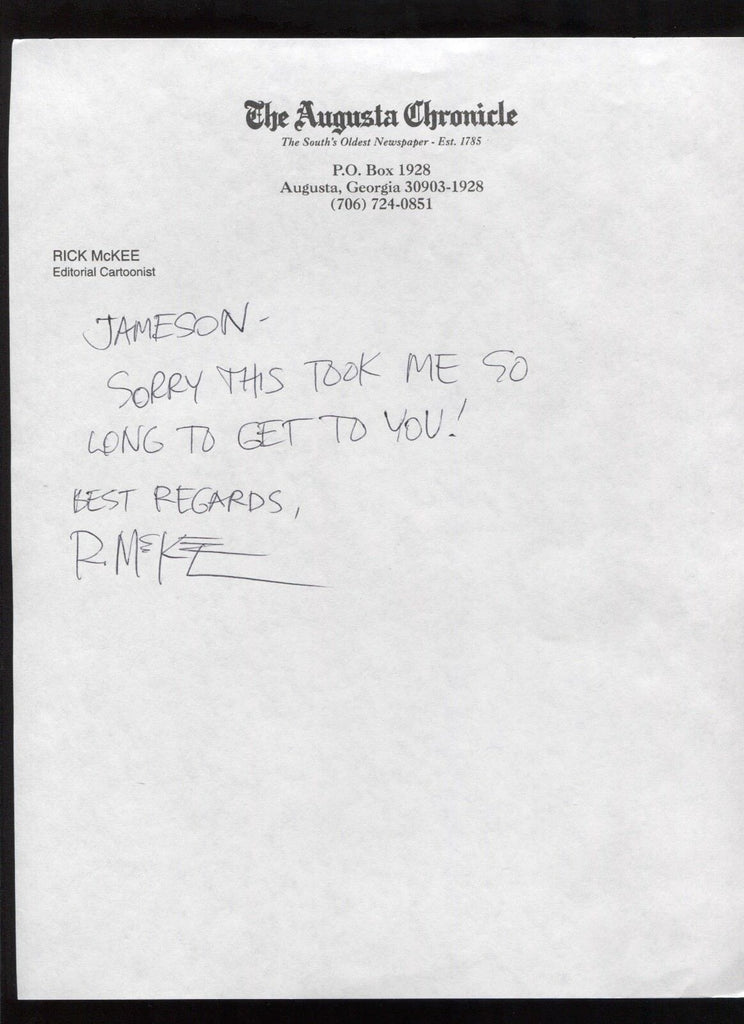 The Augusta Chronicle
The South's Oldest Newspaper - Est. 1785
P.O. Box 1928
Augusta, Georgia 30903-1928
(706) 724-0851
RICK McKEE
Editorial Cartoonist
JAMESON -
SORRY THIS TOOK ME SO
LONG TO GET TO YOU!
BEST REGARDS,
R. McKEE